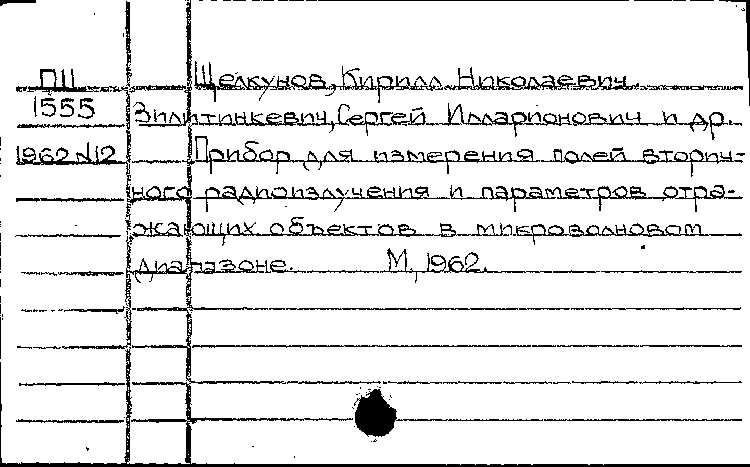 П11
1555
1962 №12
Щелкунов, Кирилл Николаевич.
Зилитинкевич, Сергей Илларионович и др.
Прибор для измерения полей вторич-
ного радиоизлучения и параметров отра-
жающих объектов в микроволновом
диапазоне. М., 1962.